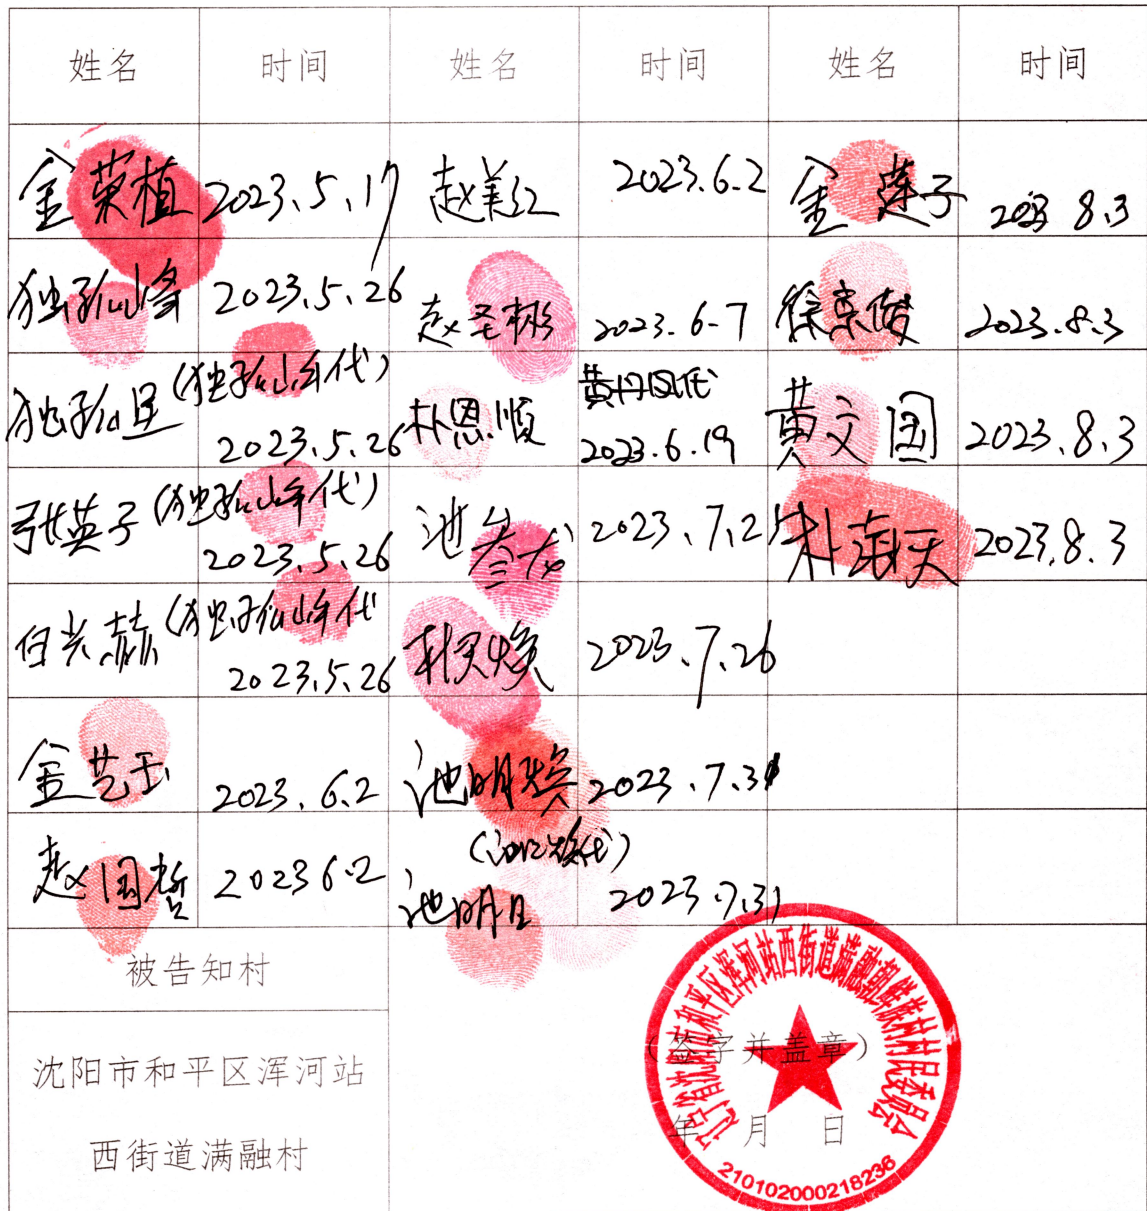 姓名 时间 姓名 时间 姓名 时间
金荣植 2023.5.17 赵美红 2023.6.2 金莲子 2023 8.3
独孤山峰 2023.5.26 赵圣彬 2023.6.7 徐京俊 2023.8.3
独孤山 (独孤山峰代) 2023.5.26 朴恩顺 2023.6.19 黄文国 2023.8.3
张英子 (独孤山峰代) 2023.5.26 池 2023.7.25 朴海天 2023.8.3
白 赫 (独孤山峰代 2023.5.26 朴 焕 2023.7.26
金艺玉 2023.6.2 池明焕 2023.7.31
赵国哲 2023 6.2 池明 2023.7.31
被告知村
沈阳市和平区浑河站
西街道满融村
(签字并盖章)
年 月 日
辽宁省沈阳市和平区浑河站西街道满融朝鲜族村村民委员会
210102000218236